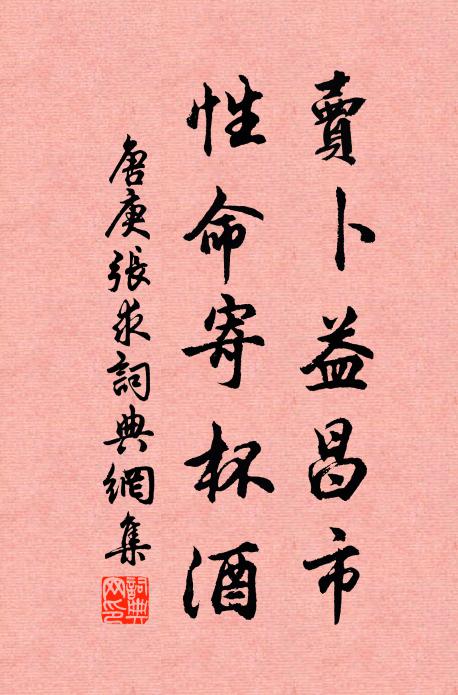 賣卜益昌市
性命寄杯酒
唐庚張求詞典網集
詞典網印